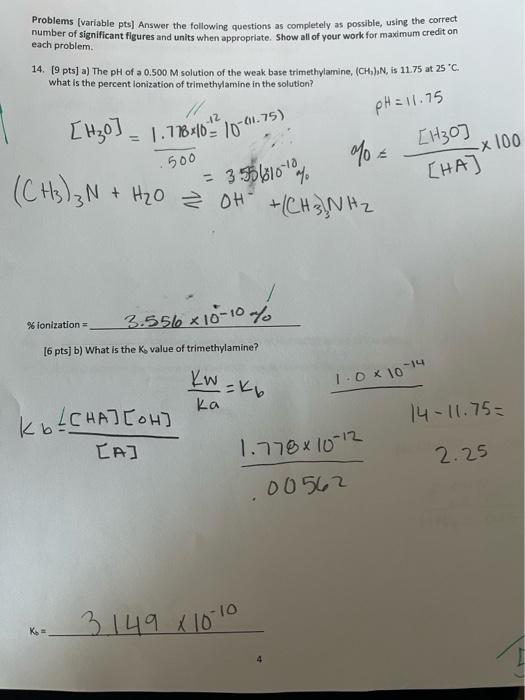 Problems [variable pts] Answer the following questions as completely as possible, using the correct
number of significant figures and units when appropriate. Show all of your work for maximum credit on
each problem.
14. [9 pts] a) The pH of a 0.500 M solution of the weak base trimethylamine, (CH₃)₃N, is 11.75 at 25 °C.
what is the percent ionization of trimethylamine in the solution?
pH = 11.75
[H3O] = 1.778x10⁻¹² = 10^(-11.75)
.500
% = [H3O] / [HA] x 100
= 3.556x10⁻¹⁰ %
(CH3)3N + H2O ⇌ OH⁻ + (CH3)3NH2
% ionization = 3.556 x 10⁻¹⁰ %
[6 pts] b) What is the Kb value of trimethylamine?
Kw / Ka = Kb
1.0 x 10⁻¹⁴
Kb = [HA][OH] / [A]
14 - 11.75 =
2.25
1.778 x 10⁻¹²
.00562
Kb = 3.149 x 10⁻¹⁰
4